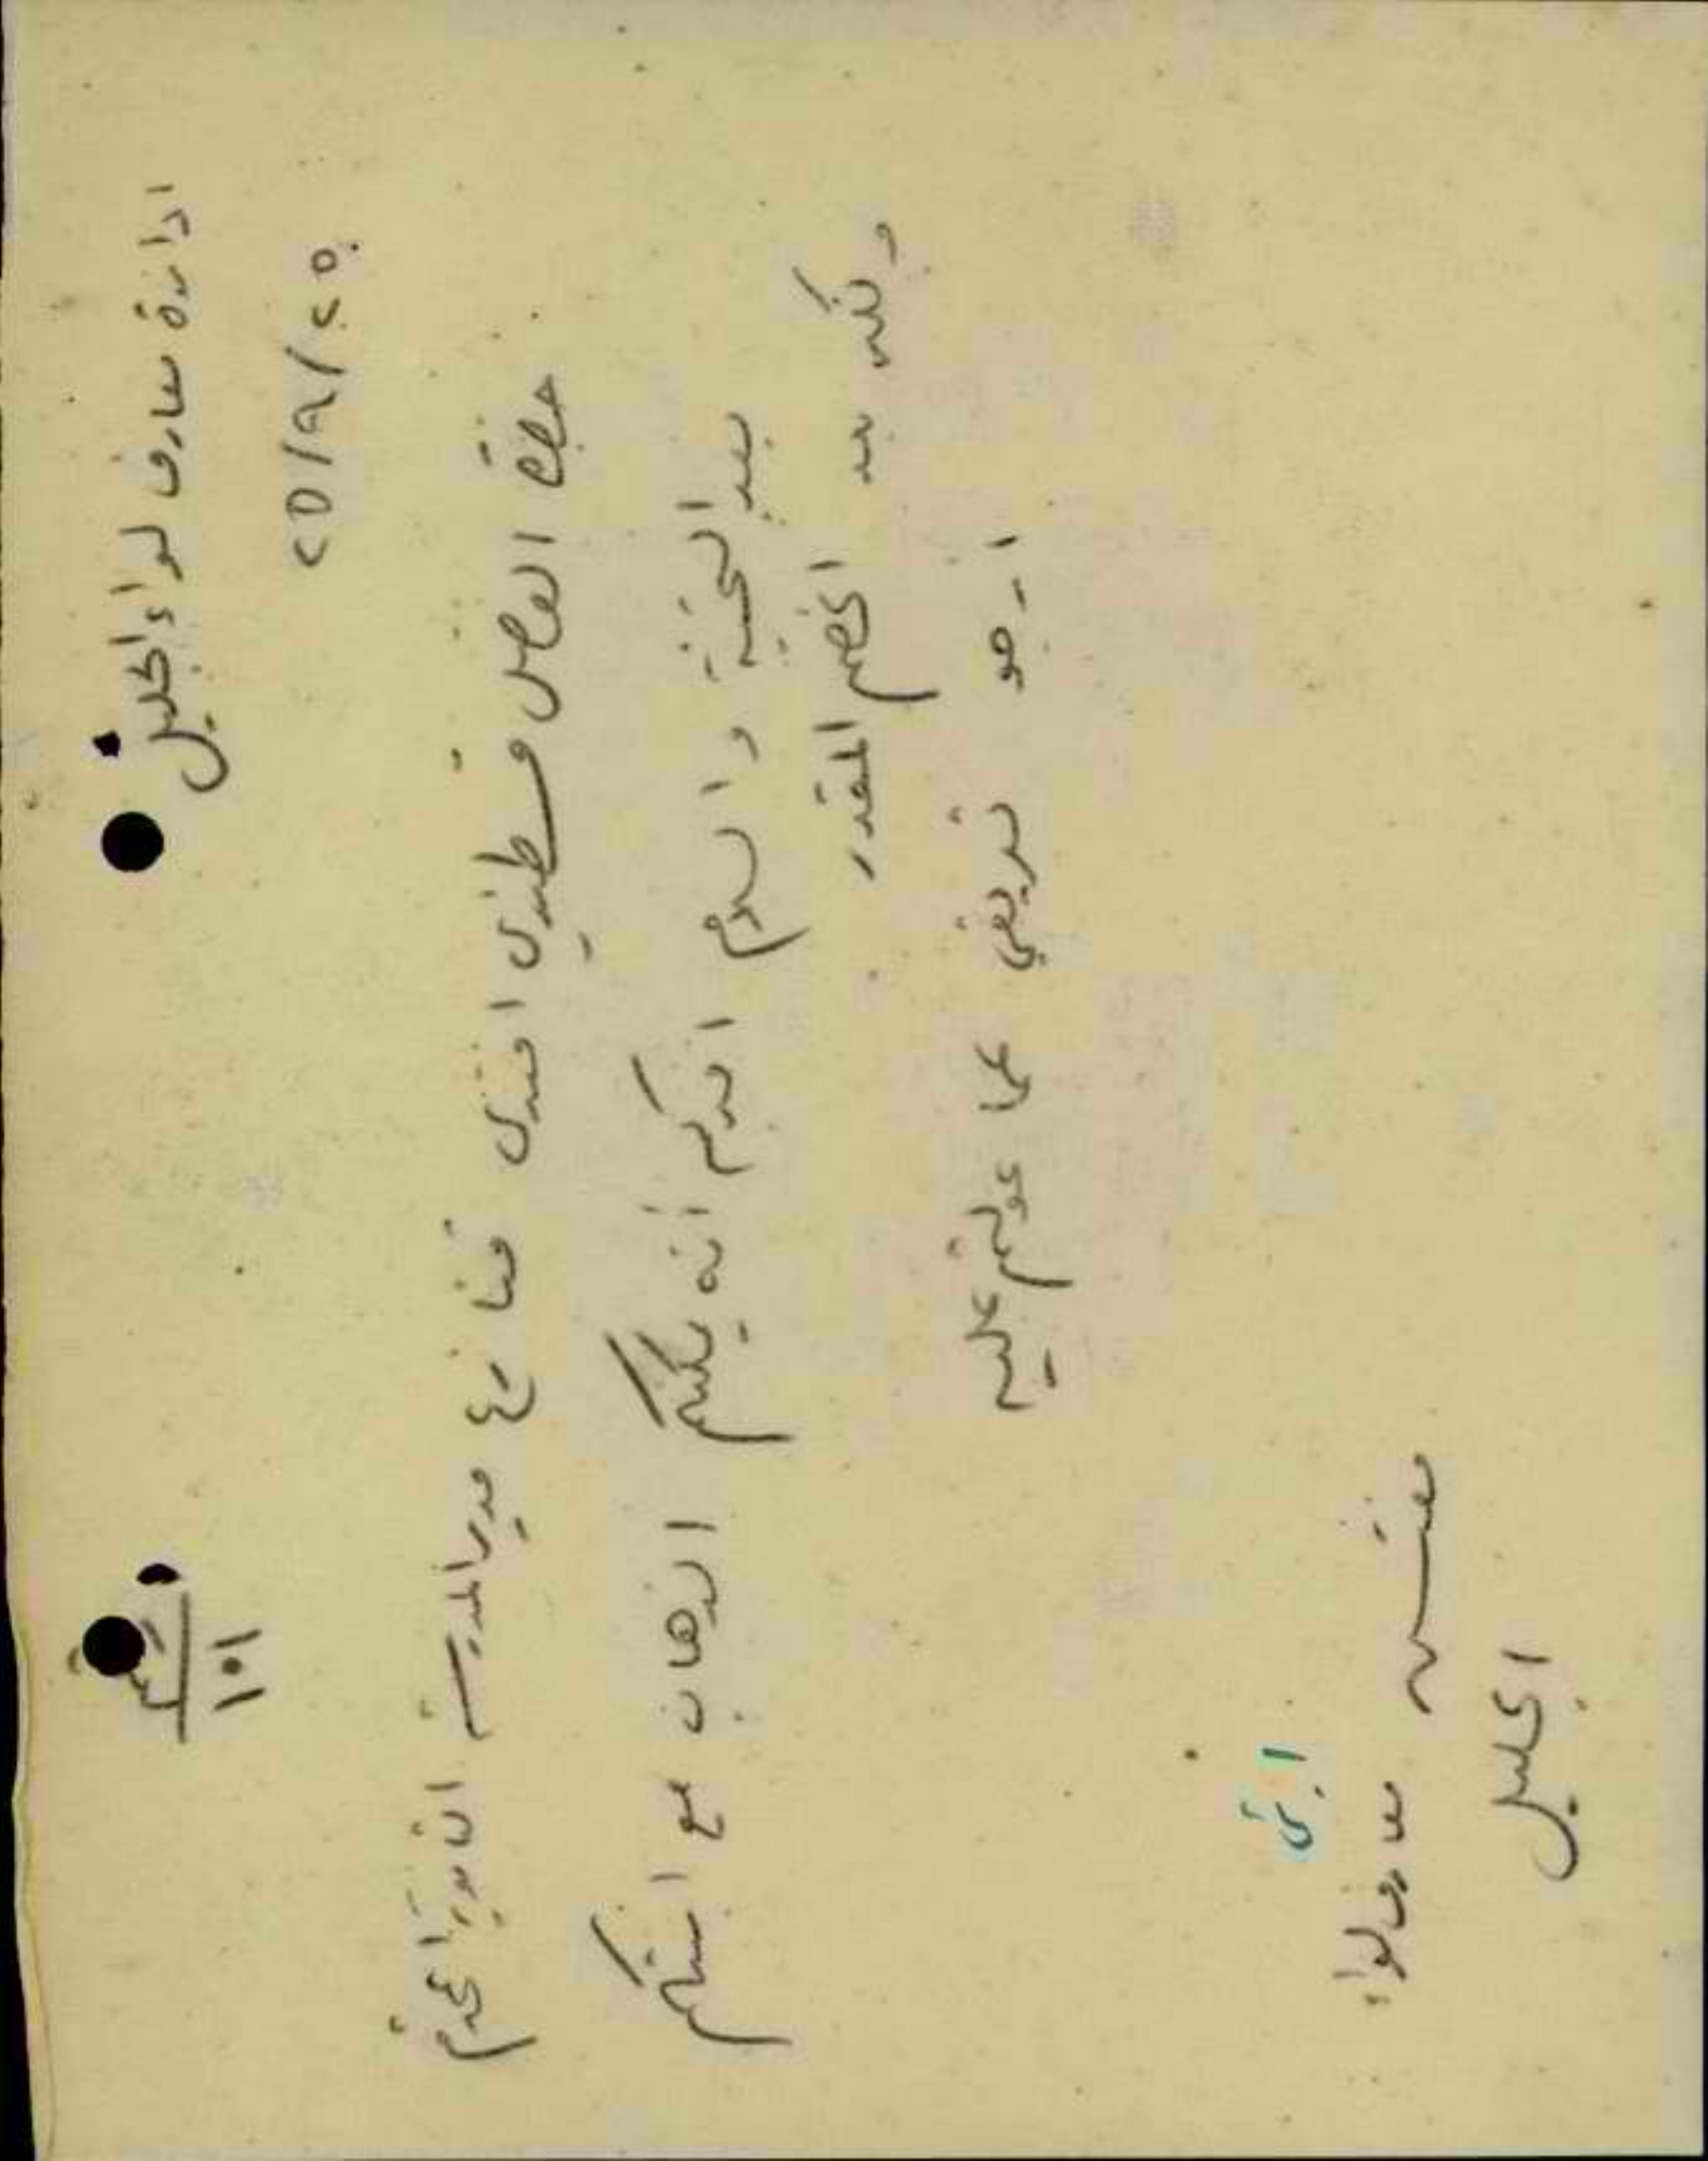 ادارة معارف لواء الجليل
٢٥/٩/٢٥
١٠١
حضرة الفاضل قسطندي افندي قنازع مدير المدرسة الثانوية المحترم
بعد التحية والسلام افيدكم انه يمكنكم الذهاب مع ابنتكم
ولكن بعد الخصم المقدر
ارجو تعريفي عما عولتم عليه
مفتش
معارف لواء
الجليل